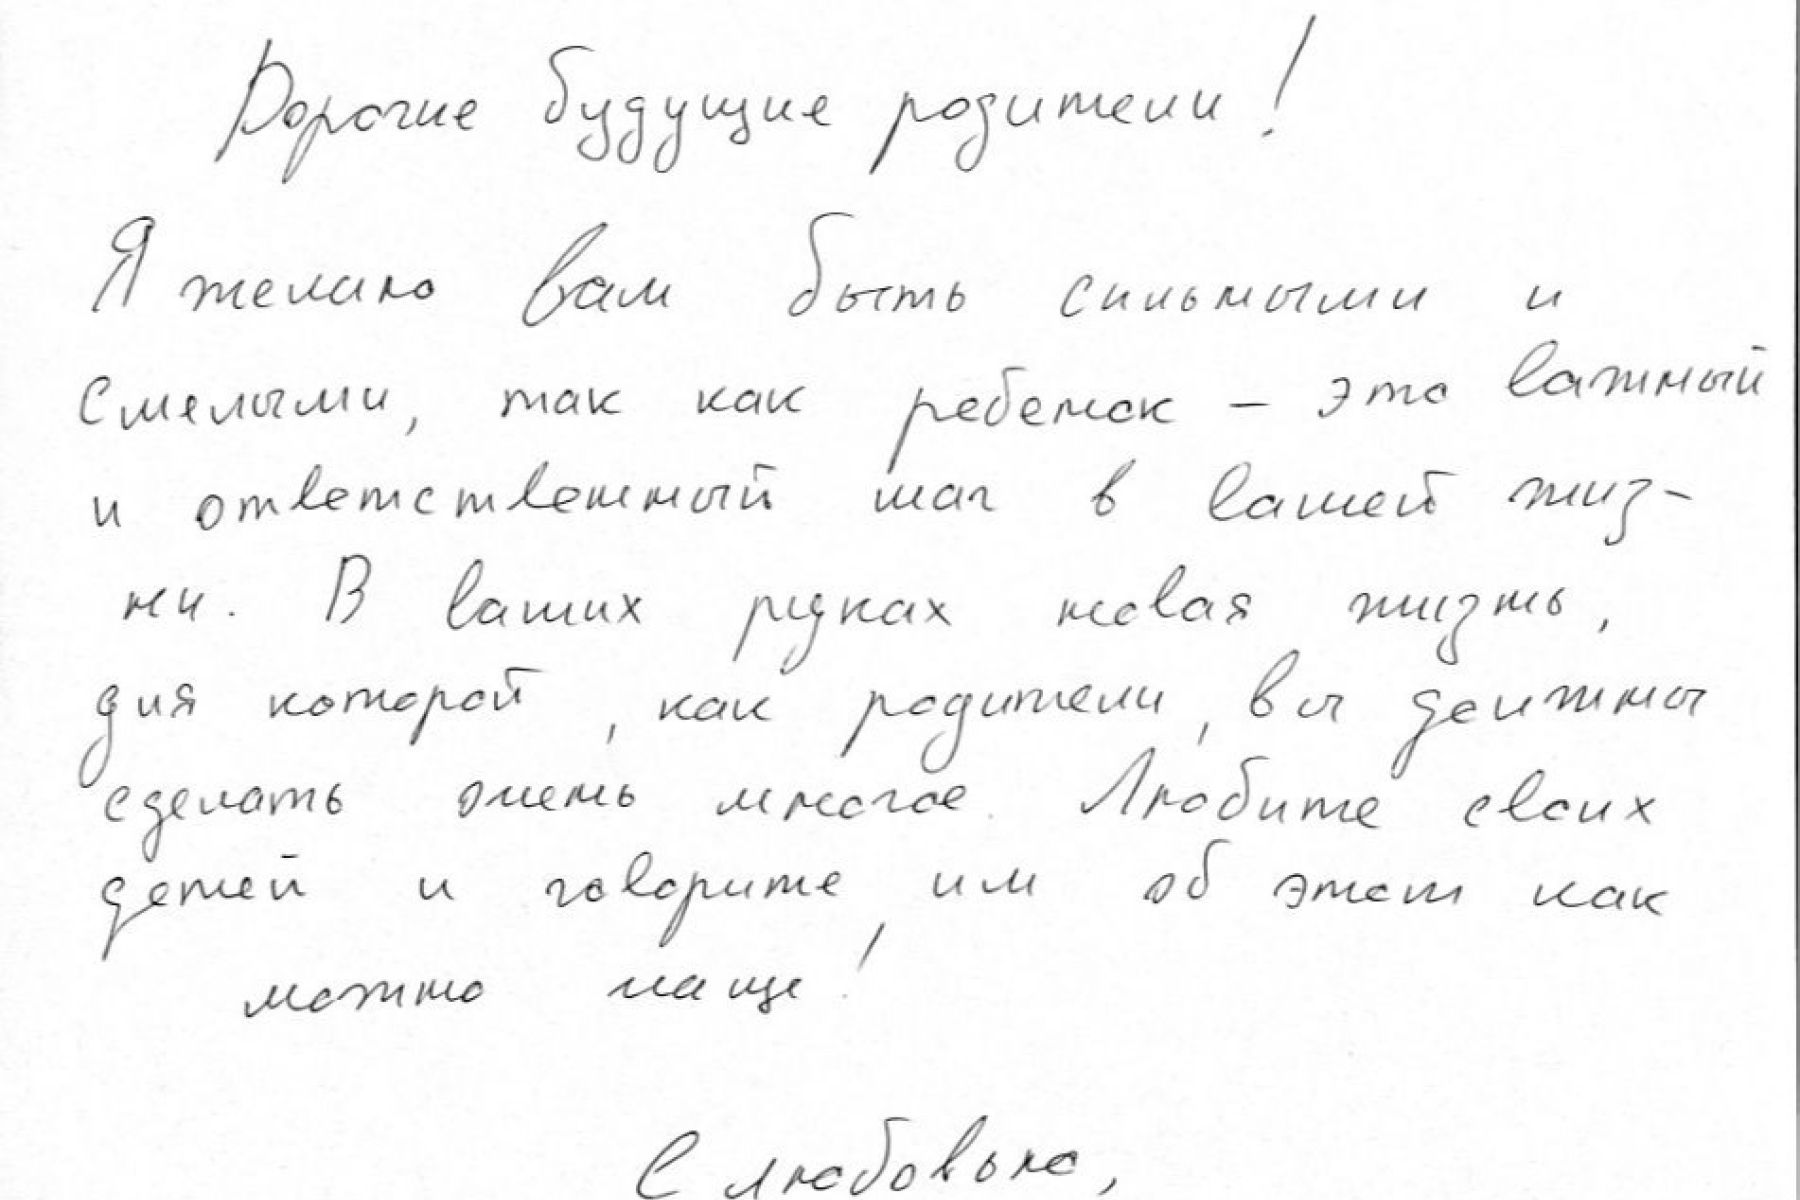 Дорогие будущие родители!
Я желаю вам быть сильными и
смелыми, так как ребенок – это важный
и ответственный шаг в вашей жиз-
ни. В ваших руках новая жизнь,
для которой, как родители, вы должны
сделать очень многое. Любите своих
детей и говорите им об этом как
можно чаще!
С любовью,